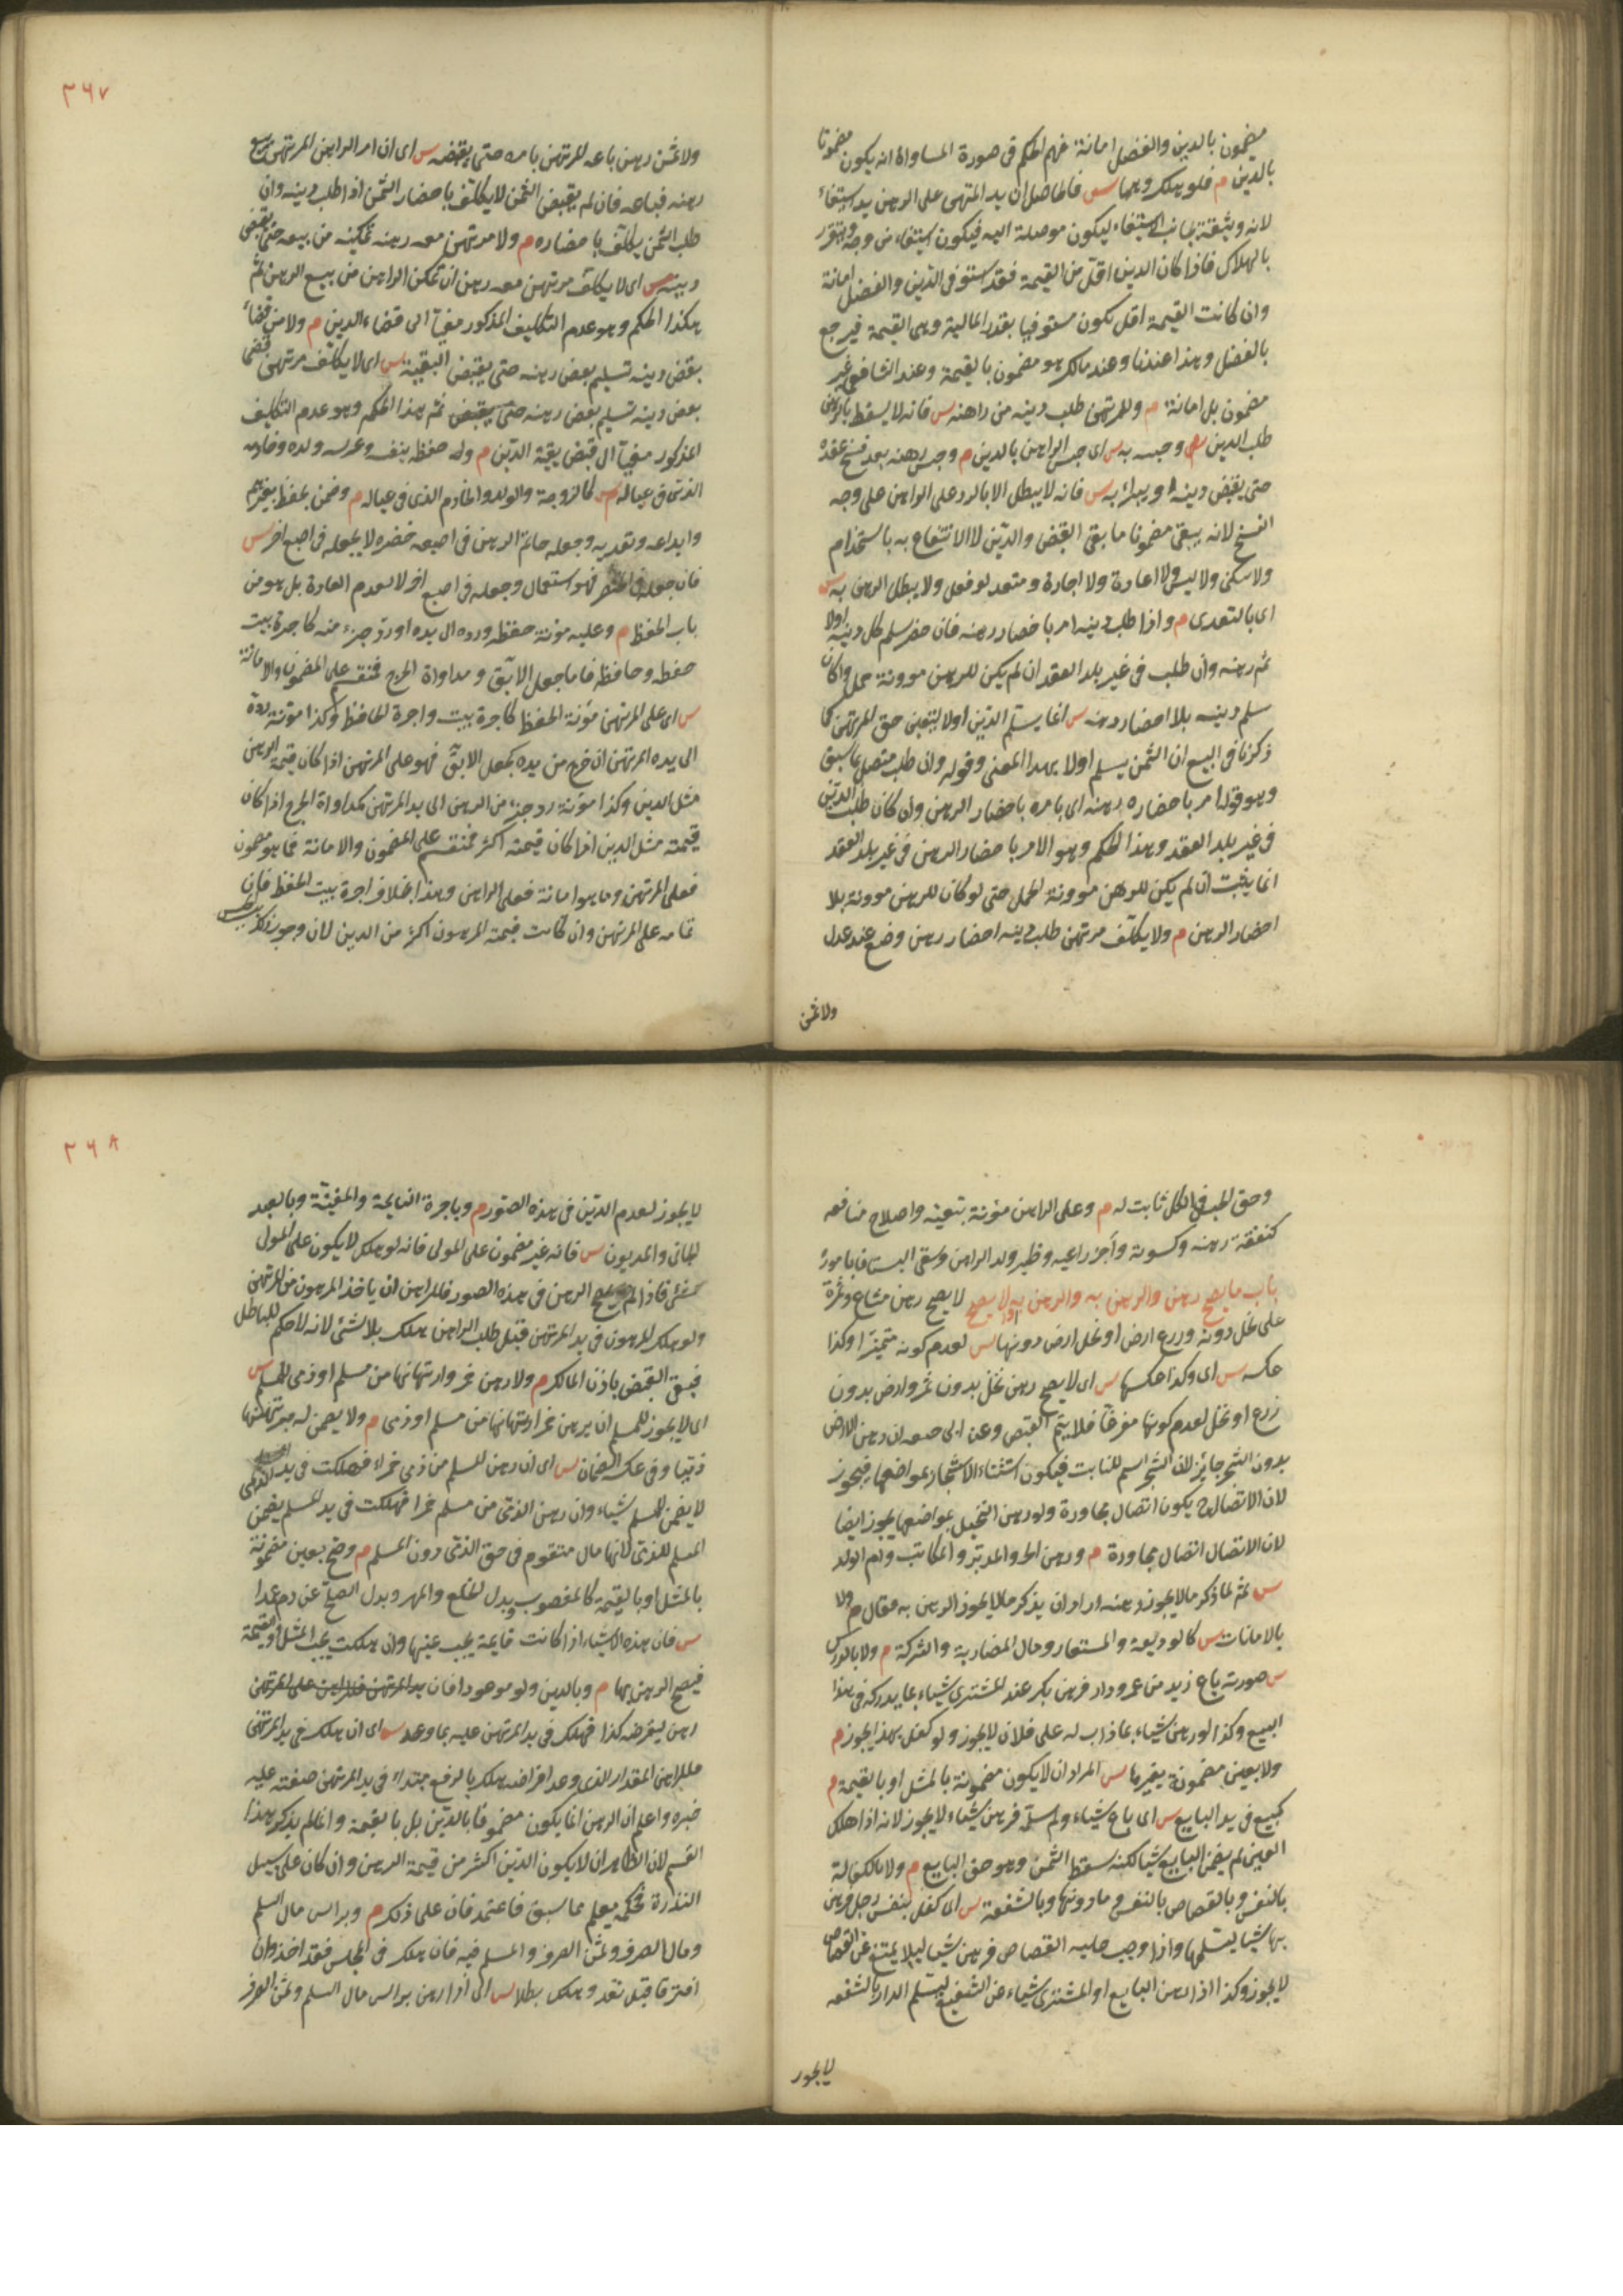 مضمون بالدين والفضل امانة فهم الحكم فى صورة المساواة انه يكون مضمونا
بالدين م فلو هلك وهما س فالحاصل ان يد المرتهن على الرهن يد استيفاء
لانه وثيقة بجانب الاستيفاء ليكون موصلة اليه فيكون استيفاء من وجه ويتقرر
بالهلاك فاذا كان الدين اقل من القيمة فقد استوفى الدين والفضل امانة
وان كانت القيمة اقل يكون مستوفيا بقدر المالية وهى القيمة فيرجع
بالفضل وهذا عندنا وعند مالك هو مضمون بالقيمة وعند الشافعى غير
مضمون بل امانة م وللمرتهن طلب دينه من راهنه س فانه لا يسقط بالرهن
طلب الدين م وحبسه به س اى حبس الراهن بالدين م وحبس رهنه بعد فسخ عقده
حتى يقبض دينه او يبرأ به س فانه لا يبطل الا بالرد على الراهن على وجه
الفسخ لانه يبقى مضمونا ما بقى القبض والدين لا الانتفاع به باستخدام
ولا سكنى ولا لبس ولا اعارة ولا اجارة ومتعد لو فعل ولا يبطل الرهن به س
اى بالتعدى م واذا طلب دينه امر باحضار رهنه فان حضر سلم كل دينه اولا
ثم رهنه وان طلب فى غير بلد العقد ان لم يكن للرهن موونة حمل وان كان
سلم دينه بلا احضار رهنه س انما يسلم الدين اولا ليتعين حق المرتهن كما
ذكرنا فى البيع ان الثمن يسلم اولا بهذا المعنى وقوله وان طلب متصل بما سبق
وهو قوله امر باحضاره رهنه اى يامره باحضار الرهن وان كان طلب الدين
فى غير بلد العقد وهذا الحكم وهو الامر باحضار الرهن فى غير بلد العقد
انما يثبت ان لم يكن للرهن موونة الحمل حتى لو كان للرهن موونة بلا
احضار الرهن م ولا يكلف مرتهن طلب دينه احضار رهن وضع عند عدل
ولا ثمن
٣٦٧
ولا ثمن رهن باعه المرتهن بامره حتى يقبضه س اى ان امر الراهن المرتهن ببيع
رهنه فباعه فان لم يقبض الثمن لا يكلف باحضار الثمن اذا طلب دينه وان
طلب الثمن يكلف باحضاره م ولا مرتهن معه رهنه تمكينه من بيعه حتى يقضى
دينه س اى لا يكلف مرتهن معه رهن ان تمكن الراهن من بيع الرهن ثم
هكذا الحكم وهو عدم التكليف المذكور مغيا الى قضاء الدين م ولا من قضاء
بعض دينه تسليم بعض رهنه حتى يقبض البقية س اى لا يكلف مرتهن قضى
بعض دينه تسليم بعض رهنه حتى يقبض ثم هذا الحكم وهو عدم التكليف
المذكور مغيا الى قبض بقية الدين م وله حفظه بنفسه وعرسه وولده وخادمه
الذى فى عياله س كالزوجة والولد والخادم الذى فى عياله م وضمن بحفظ بغيرهم
وايداعه وتعديه وجعله خاتم الرهن فى اصبعه خنصره لا بجعله فى اصبع اخر س
فان جعله فى الخنصر فهو استعمال وجعله فى اصبع اخر لا لعدم العادة بل هو من
باب الحفظ م وعليه مؤنة حفظه ورده الى يده او رد جزء منه كاجرة بيت
حفظه وحافظه فاما جعل الابق ومداواة الجرح فمنقسم على المضمون والامانة
س اى على المرتهن مؤنة الحفظ كاجرة بيت واجرة الحافظ وكذا مؤنة رده
الى يده المرتهن ان خرج من يده كجعل الابق فهو على المرتهن اذا كان قيمة الرهن
مثل الدين وكذا مؤنة رد جزء من الرهن الى يد المرتهن كمداواة الجرح اذا كان
قيمته مثل الدين اذا كان قيمته اكثر فمنقسم على المضمون والامانة فما هو مضمون
فعلى المرتهن وما هو امانة فعلى الراهن وهذا بخلاف اجرة بيت الحفظ فان
تمامه على المرتهن وان كانت قيمة المرهون اكثر من الدين لان وجوب ذلك بسبب الحبس
وحق الحبس فى الكل ثابت له م وعلى الراهن مؤنة تبقيته واصلاح منافعه
كنفقة رهنه وكسوته واجر راعيه وظير ولد الراهن وسقى البستان بامور
باب ما يصح رهن والرهن به والرهن به او لا يصح لا يصح رهن مشاع وثمرة
على نخل دونه وزرع ارض او نخل ارض دونها س لعدم كونه متميزا وكذا
عكسه س اى وكذا عكسها س اى لا يصح رهن نخل بدون ثمر وارض بدون
زرع او نخل لعدم كونها مفرغا فلا يتم القبض وعن ابى حنيفه ان رهن الارض
بدون الشجر جائز لان الشجر اسم للنابت فيكون استثناء الاشجار بمواضعها فيجوز
لان الاتصال ح يكون اتصال مجاورة ولو رهن النخيل بمواضعها يجوز ايضا
لان الاتصال اتصال مجاورة م ورهن الحر والمدبر والمكاتب وام الولد
س ثم لما ذكر ما لا يجوز رهنه اراد ان يذكر ما لا يجوز الرهن به فقال م ولا
بالامانات س كالوديعة والمستعار ومال المضاربة والشركة م ولا بالدرك
س صورته باع زيد من عمرو دار فرهن بكر عند المشترى شيئا بما يدركه فى هذا
البيع وكذا لو رهن شياء بما ذاب له على فلان لا يجوز ولو كفل بهذا يجوز م
ولا بعين مضمونة بغيرها س المراد ان لا يكون مضمونة بالمثل او بالقيمة م
كمبيع فى يد البايع س اى باع شياء ولم يسلمه فرهن شياء لا يجوز لانه اذا هلك
العين لم يضمن البايع شيا لكنه سقط الثمن وهو حق البايع م ولا بالكفالة
بالنفس وبالقصاص بالنفس وما دونها وبالشفعة س اى كفل بنفس رجل فرهن
بها شيا يسلمها واذا وجب عليه القصاص فرهن شيا ليلا يمتنع عن القصاص
لا يجوز وكذا اذا رهن البايع او المشترى شياء عن الشفيع ليسلم الدار بالشفعه
لا يجوز
٣٦٨
لا يجوز لعدم الدين فى هذه الصور م وباجرة النايحة والمغنية وبالعبد
الجانى والمديون س فانه غير مضمون على المولى فانه لو هلك لا يكون على المولى
شئ فاذا لم يصح الرهن فى هذه الصور فللراهن ان ياخذ المرهون من المرتهن
ولو هلك المرهون فى يد المرتهن قبل طلب الراهن هلك بلا شئ لانه لا حكم للباطل
فبقى القبض باذن المالك م ولا رهن خمر وارتهانها من مسلم او ذمى للمسلم س
اى لا يجوز للمسلم ان يرهن خمرا وارتهانها من مسلم او ذمى م ولا يضمن له مرتهنها
ذميا وفى عكسه الضمان س اى ان رهن المسلم من ذمى خمرا فهلكت فى يد الذمى
لا يضمن للمسلم شياء وان رهن الذمى من مسلم خمرا فهلكت فى يد المسلم يضمن
المسلم للذمى لانها مال متقوم فى حق الذمى دون المسلم م وصح بعين مضمونة
بالمثل او بالقيمة كالمغصوب وبدل الخلع والمهر وبدل الصلح عن دم عمدا
س فان هذه الاشياء اذا كانت قايمة يجب عينها وان هلكت يجب المثل او القيمة
فيصح الرهن بها م وبالدين ولو موعودا فان
رهن ليقرضه كذا فهلك فى يد المرتهن عليه بما وعد س اى ان هلك فى يد المرتهن
فللراهن المقدار الذى وعد اقراضه هلك بالرفع مبتداء فى يد المرتهن صفته عليه
خبره واعلم ان الرهن انما يكون مضمونا بالدين بل بالقيمة وانما لم يذكر هذا
القسم لان الظاهر ان لا يكون الدين اكثر من قيمة الرهن وان كان على سبيل
الندرة فحكمه يعلم مما سبق فاعتمد فان على ذلك م وبراس مال السلم
ومال الصرف وثمن الصرف والمسلم فيه فان هلك فى المجلس فقد اخذ وان
افترقا قبل نقد وهلك بطلا س اى اذا رهن براس مال السلم وثمن الصرف